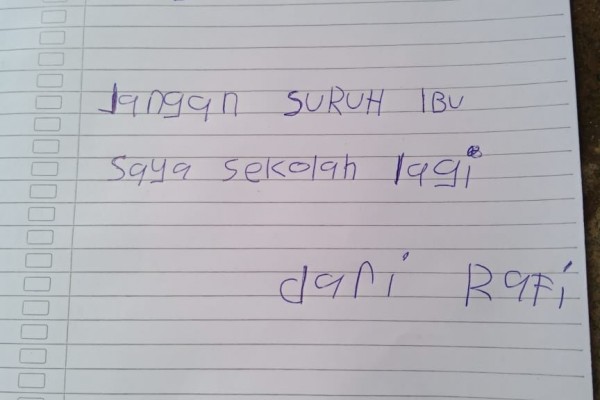 Jangan SURUH IBU
Saya sekolah lagi
dari RaFi